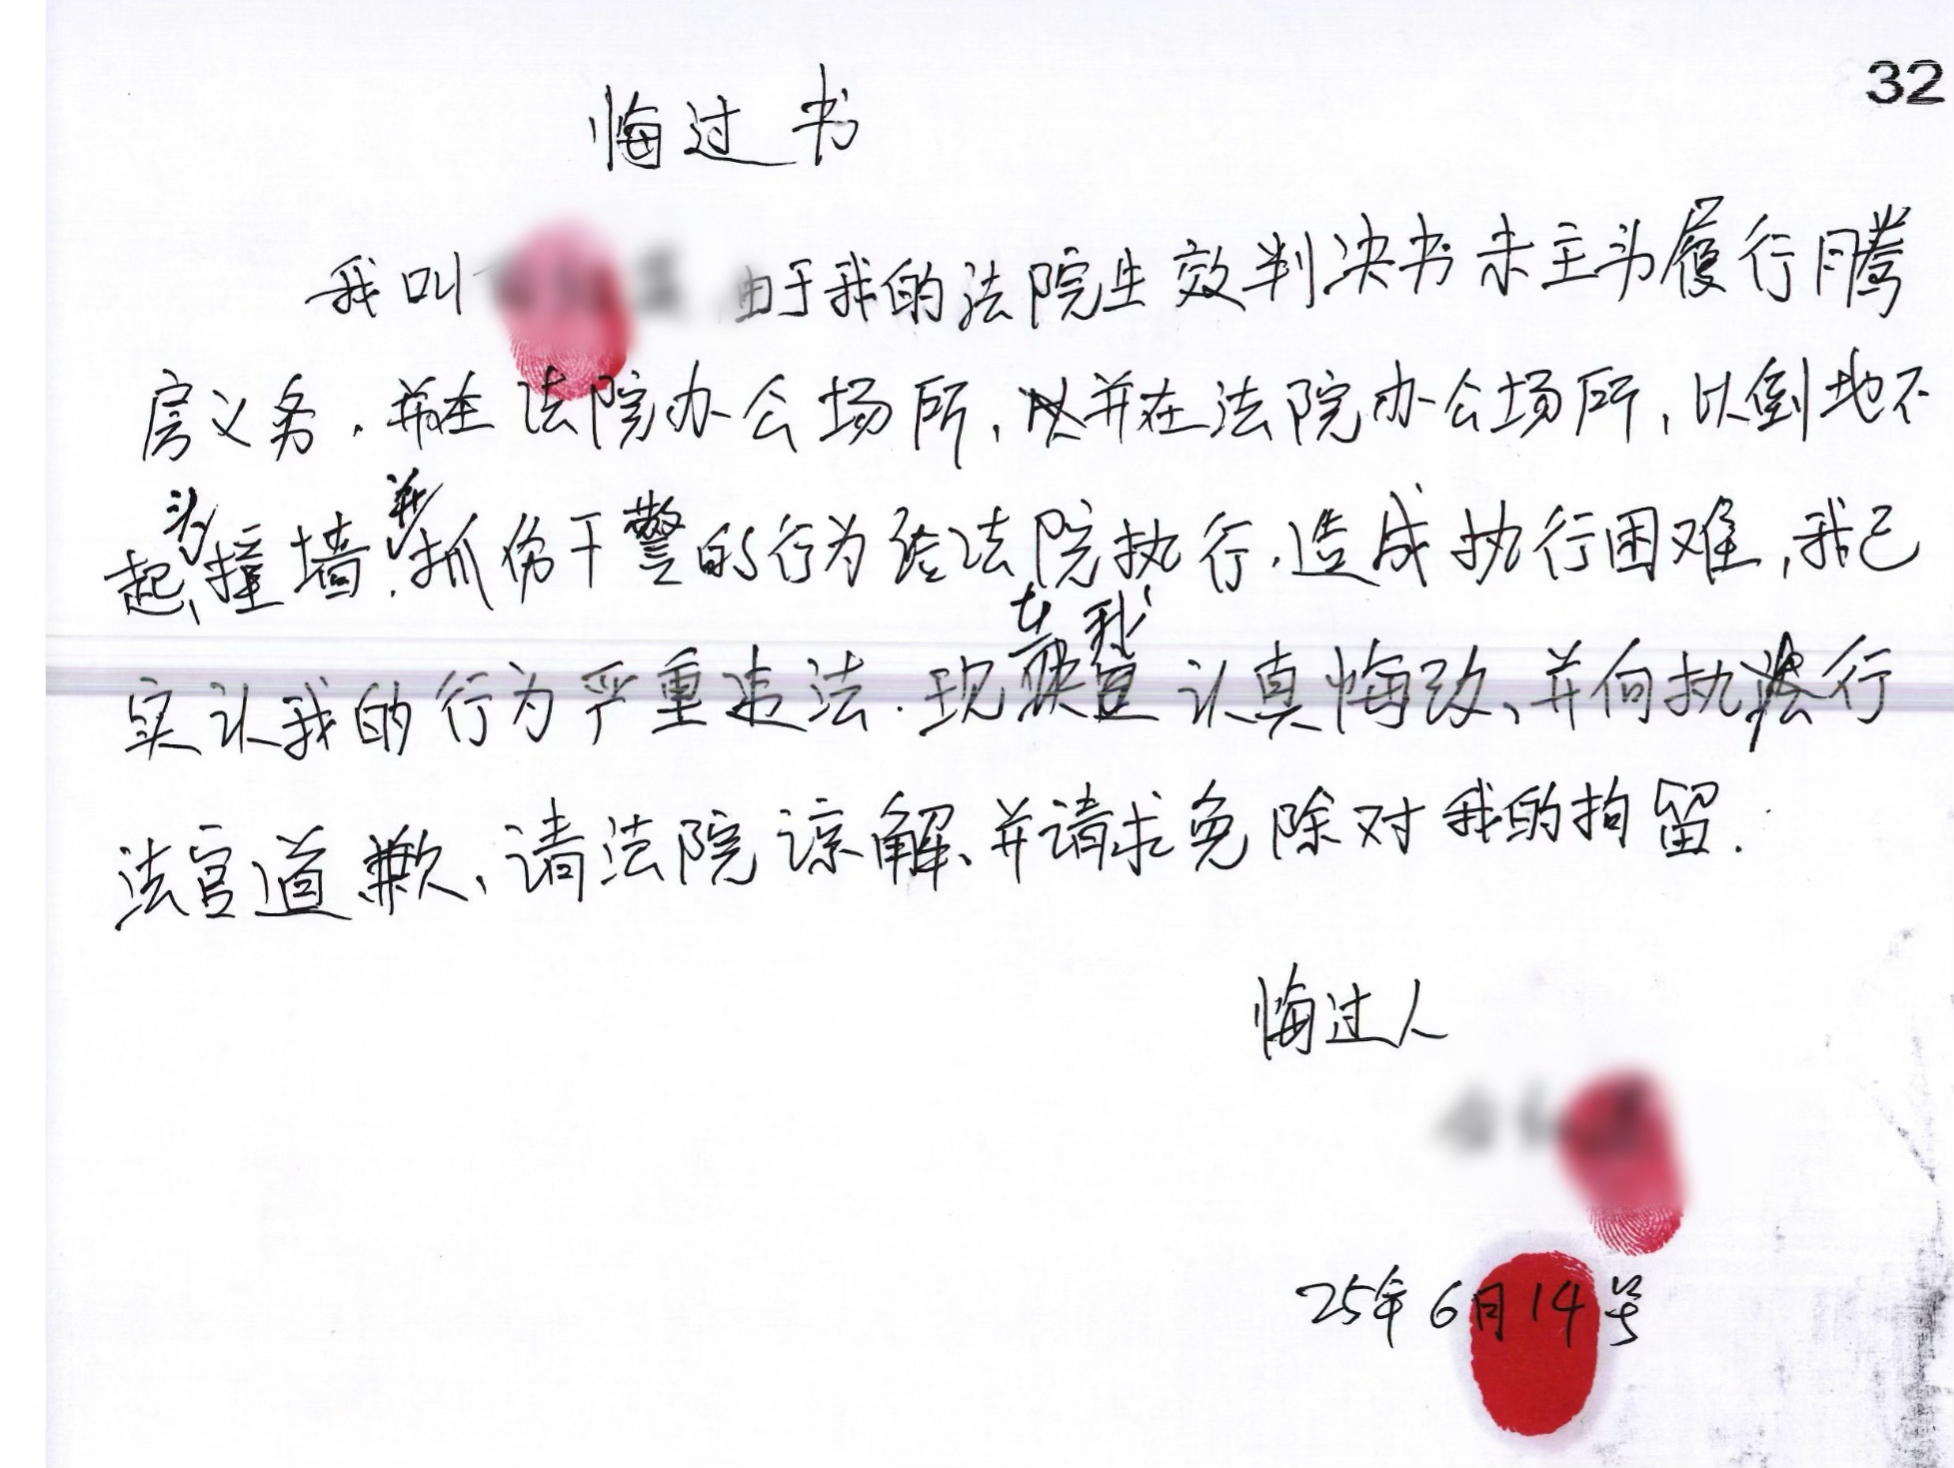 32
悔过书
我叫 由于我的法院生效判决书未主动履行腾
房义务，并在法院办公场所，并在法院办公场所，以倒地不
起、头撞墙，并抓伤干警的行为给法院执行，造成执行困难，我已
实认我的行为严重违法．现在我认真悔改、并向执行
法官道歉、请法院谅解、并请求免除对我的拘留．
悔过人
25年6月14号